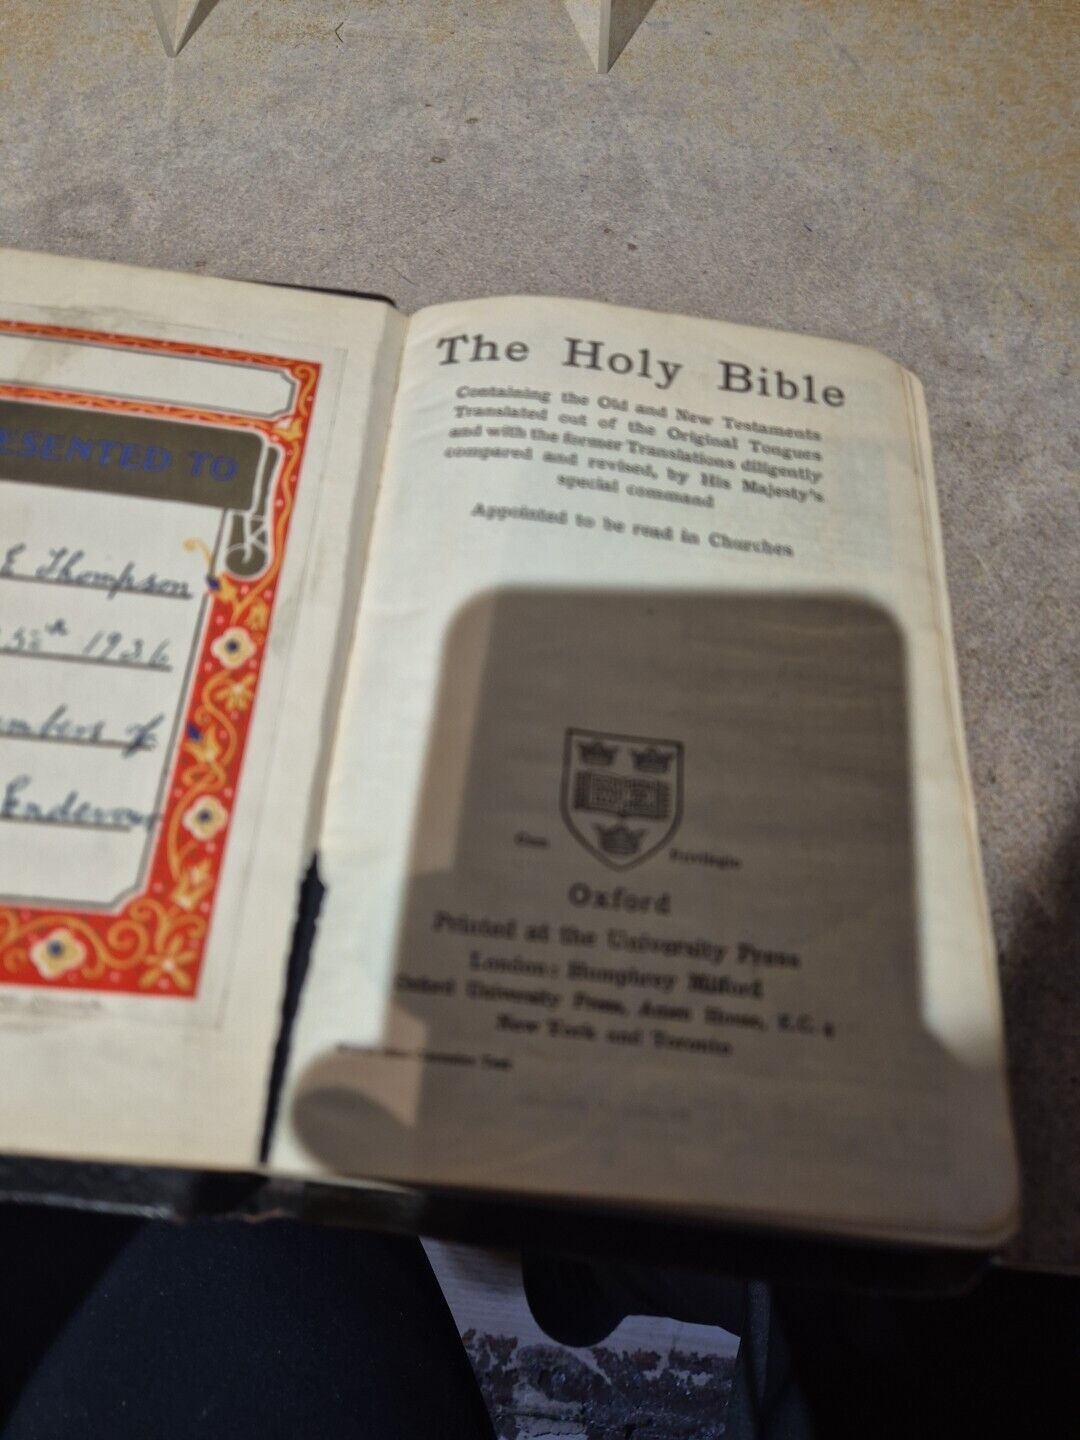 ESENTED TO
E Thompson
1936
mbers of
Endevour
The Holy Bible
Containing the Old and New Testaments
Translated out of the Original Tongues
and with the former Translations diligently
compared and revised, by His Majesty's
special command
Appointed to be read in Churches
Cum Privilegio
Oxford
Printed at the University Press
London: Humphrey Milford
Oxford University Press, Amen House, E.C. 4
New York and Toronto